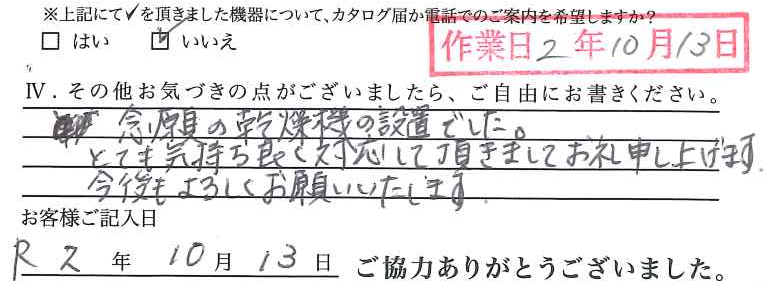 ※上記にて✓を頂きました機器について、カタログ届か電話でのご案内を希望しますか?
□ はい ☑ いいえ
作業日2年10月13日
Ⅳ．その他お気づきの点がございましたら、ご自由にお書きください。
念願の乾燥機の設置でした。
とても気持ち良く対応して頂きましてお礼申し上げます.
今後もよろしくお願いいたします.
お客様ご記入日
R2年10月13日 ご協力ありがとうございました。